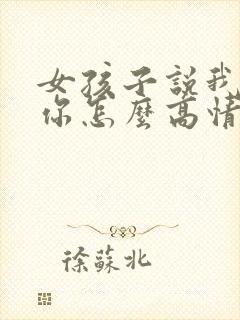 女孩子說我
你怎麼高情
徐蘇北